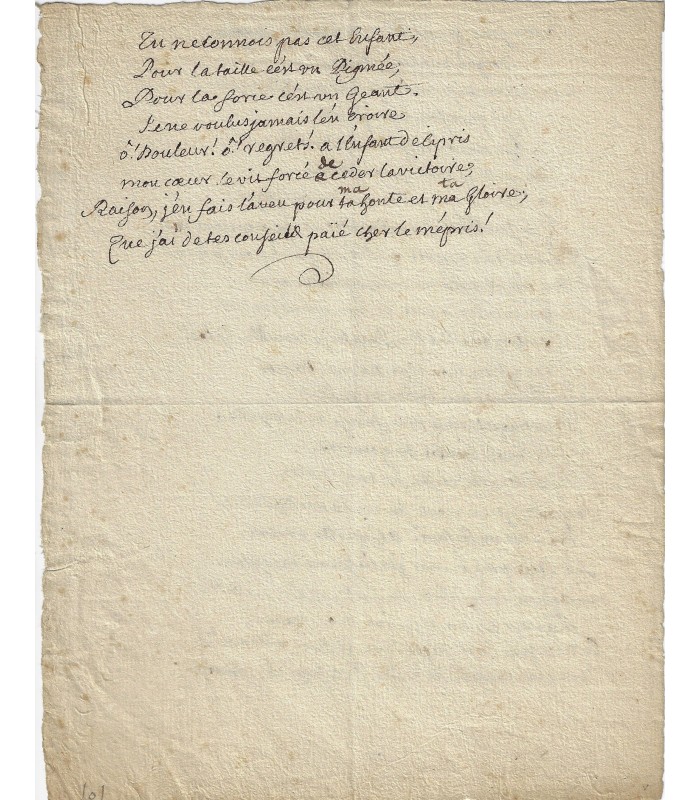 Tu ne connois pas cet Enfant,
Pour la taille c'est un Pigmée,
Pour la force c'est un Geant.
Je ne voulus jamais l'en croire
ô! Douleur! ô! regrets! a l'Enfant de Cipris
de
mon cœur se vit forcé a ceder la victoire,
ma ta
Raison, j'en fais l'aveu pour ta honte et ma Gloire;
Que j'ai de tes conseils païé cher le mépris!